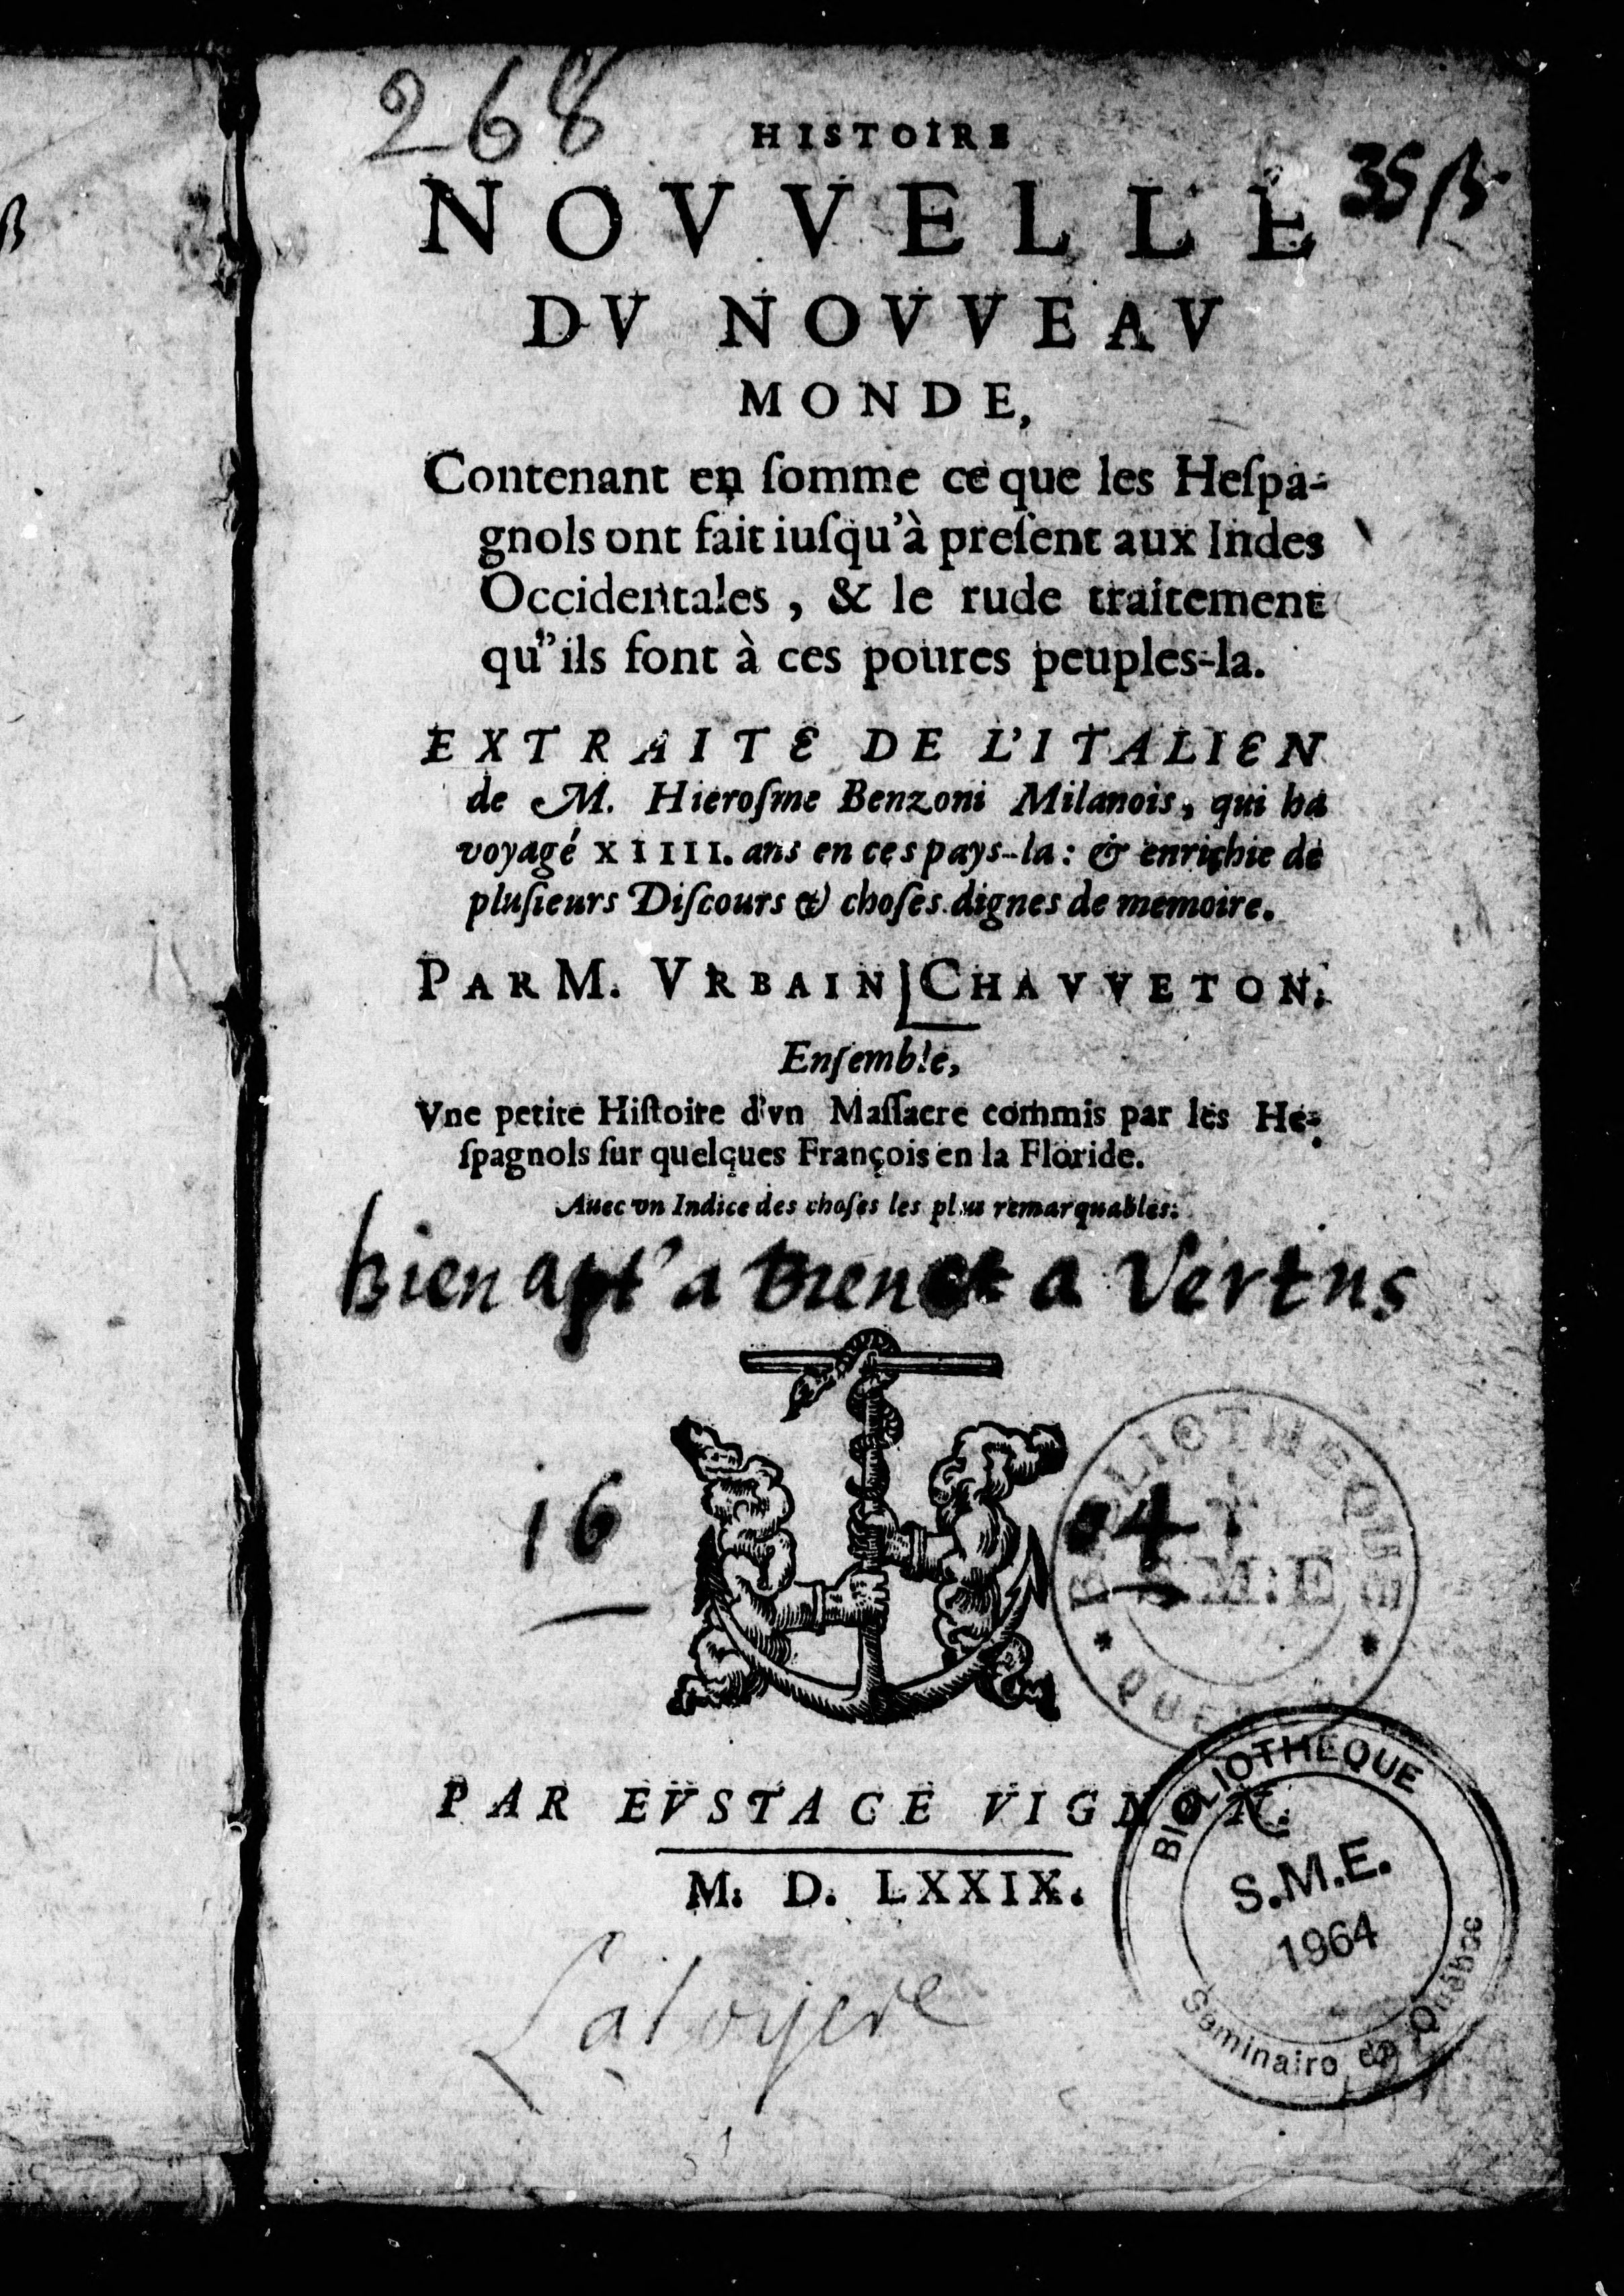 268
HISTOIRE
35 ß
NOVVELLE
DV NOVVEAV
MONDE,
Contenant en ſomme ce que les Heſpa-
gnols ont fait iuſqu'à preſent aux Indes
Occidentales, & le rude traitement
qu'ils font à ces poures peuples-la.
EXTRAITE DE L'ITALIEN
de M. Hieroſme Benzoni Milanois, qui ha
voyagé XIIII. ans en ces pays-la: & enrichie de
pluſieurs Diſcours & choſes dignes de memoire.
PAR M. VRBAIN CHAVVETON.
Enſemble,
Vne petite Hiſtoire d'vn Maſſacre commis par les He-
ſpagnols ſur quelques François en la Floride.
Auec vn Indice des choſes les plus remarquables.
bien apt' a Bien et a Vertus
16 04
BIBLIOTHEQUE
S.M:E
QUEBEC
PAR EVSTACE VIGNON.
M. D. LXXIX.
BIBLIOTHEQUE
S.M.E.
1964
Séminaire de Québec